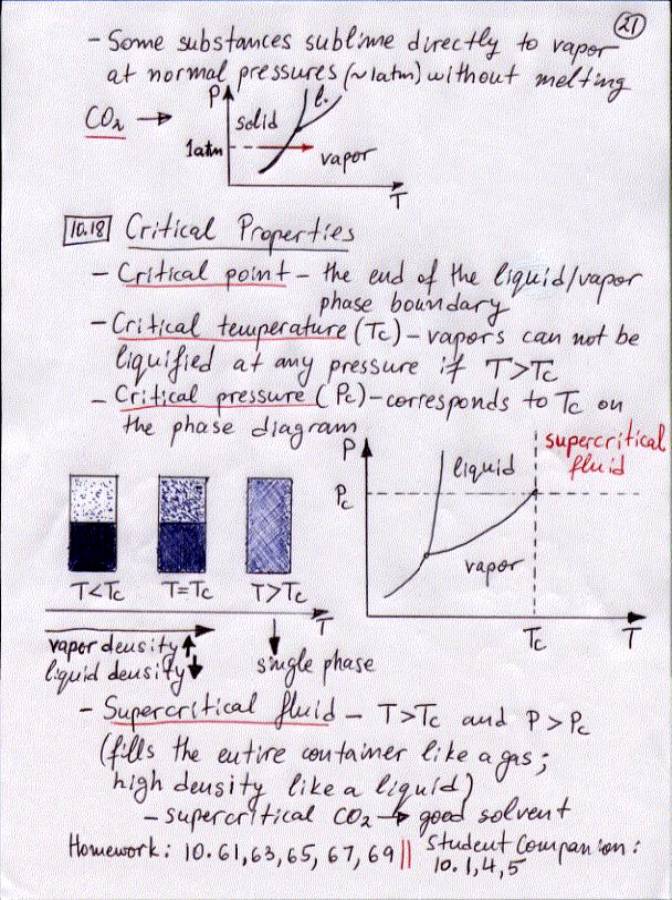 21
- Some substances sublime directly to vapor
at normal pressures (~1atm) without melting
CO₂ → P solid l.
1atm vapor
T
10.18 Critical Properties
- Critical point - the end of the liquid/vapor
phase boundary
- Critical temperature (Tc) - vapors can not be
liquified at any pressure if T>Tc
- Critical pressure (Pc) - corresponds to Tc on
the phase diagram
P liquid supercritical
fluid
Pc
vapor
T<Tc T=Tc T>Tc
T
Tc T
vapor density ↑
liquid density ↓
single phase
- Supercritical fluid - T>Tc and P>Pc
(fills the entire container like a gas;
high density like a liquid)
- supercritical CO₂ → good solvent
Homework: 10.61,63,65,67,69 || Student Companion:
10.1,4,5